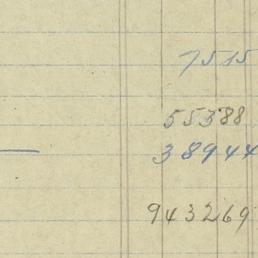 7515
55388
38944
943269